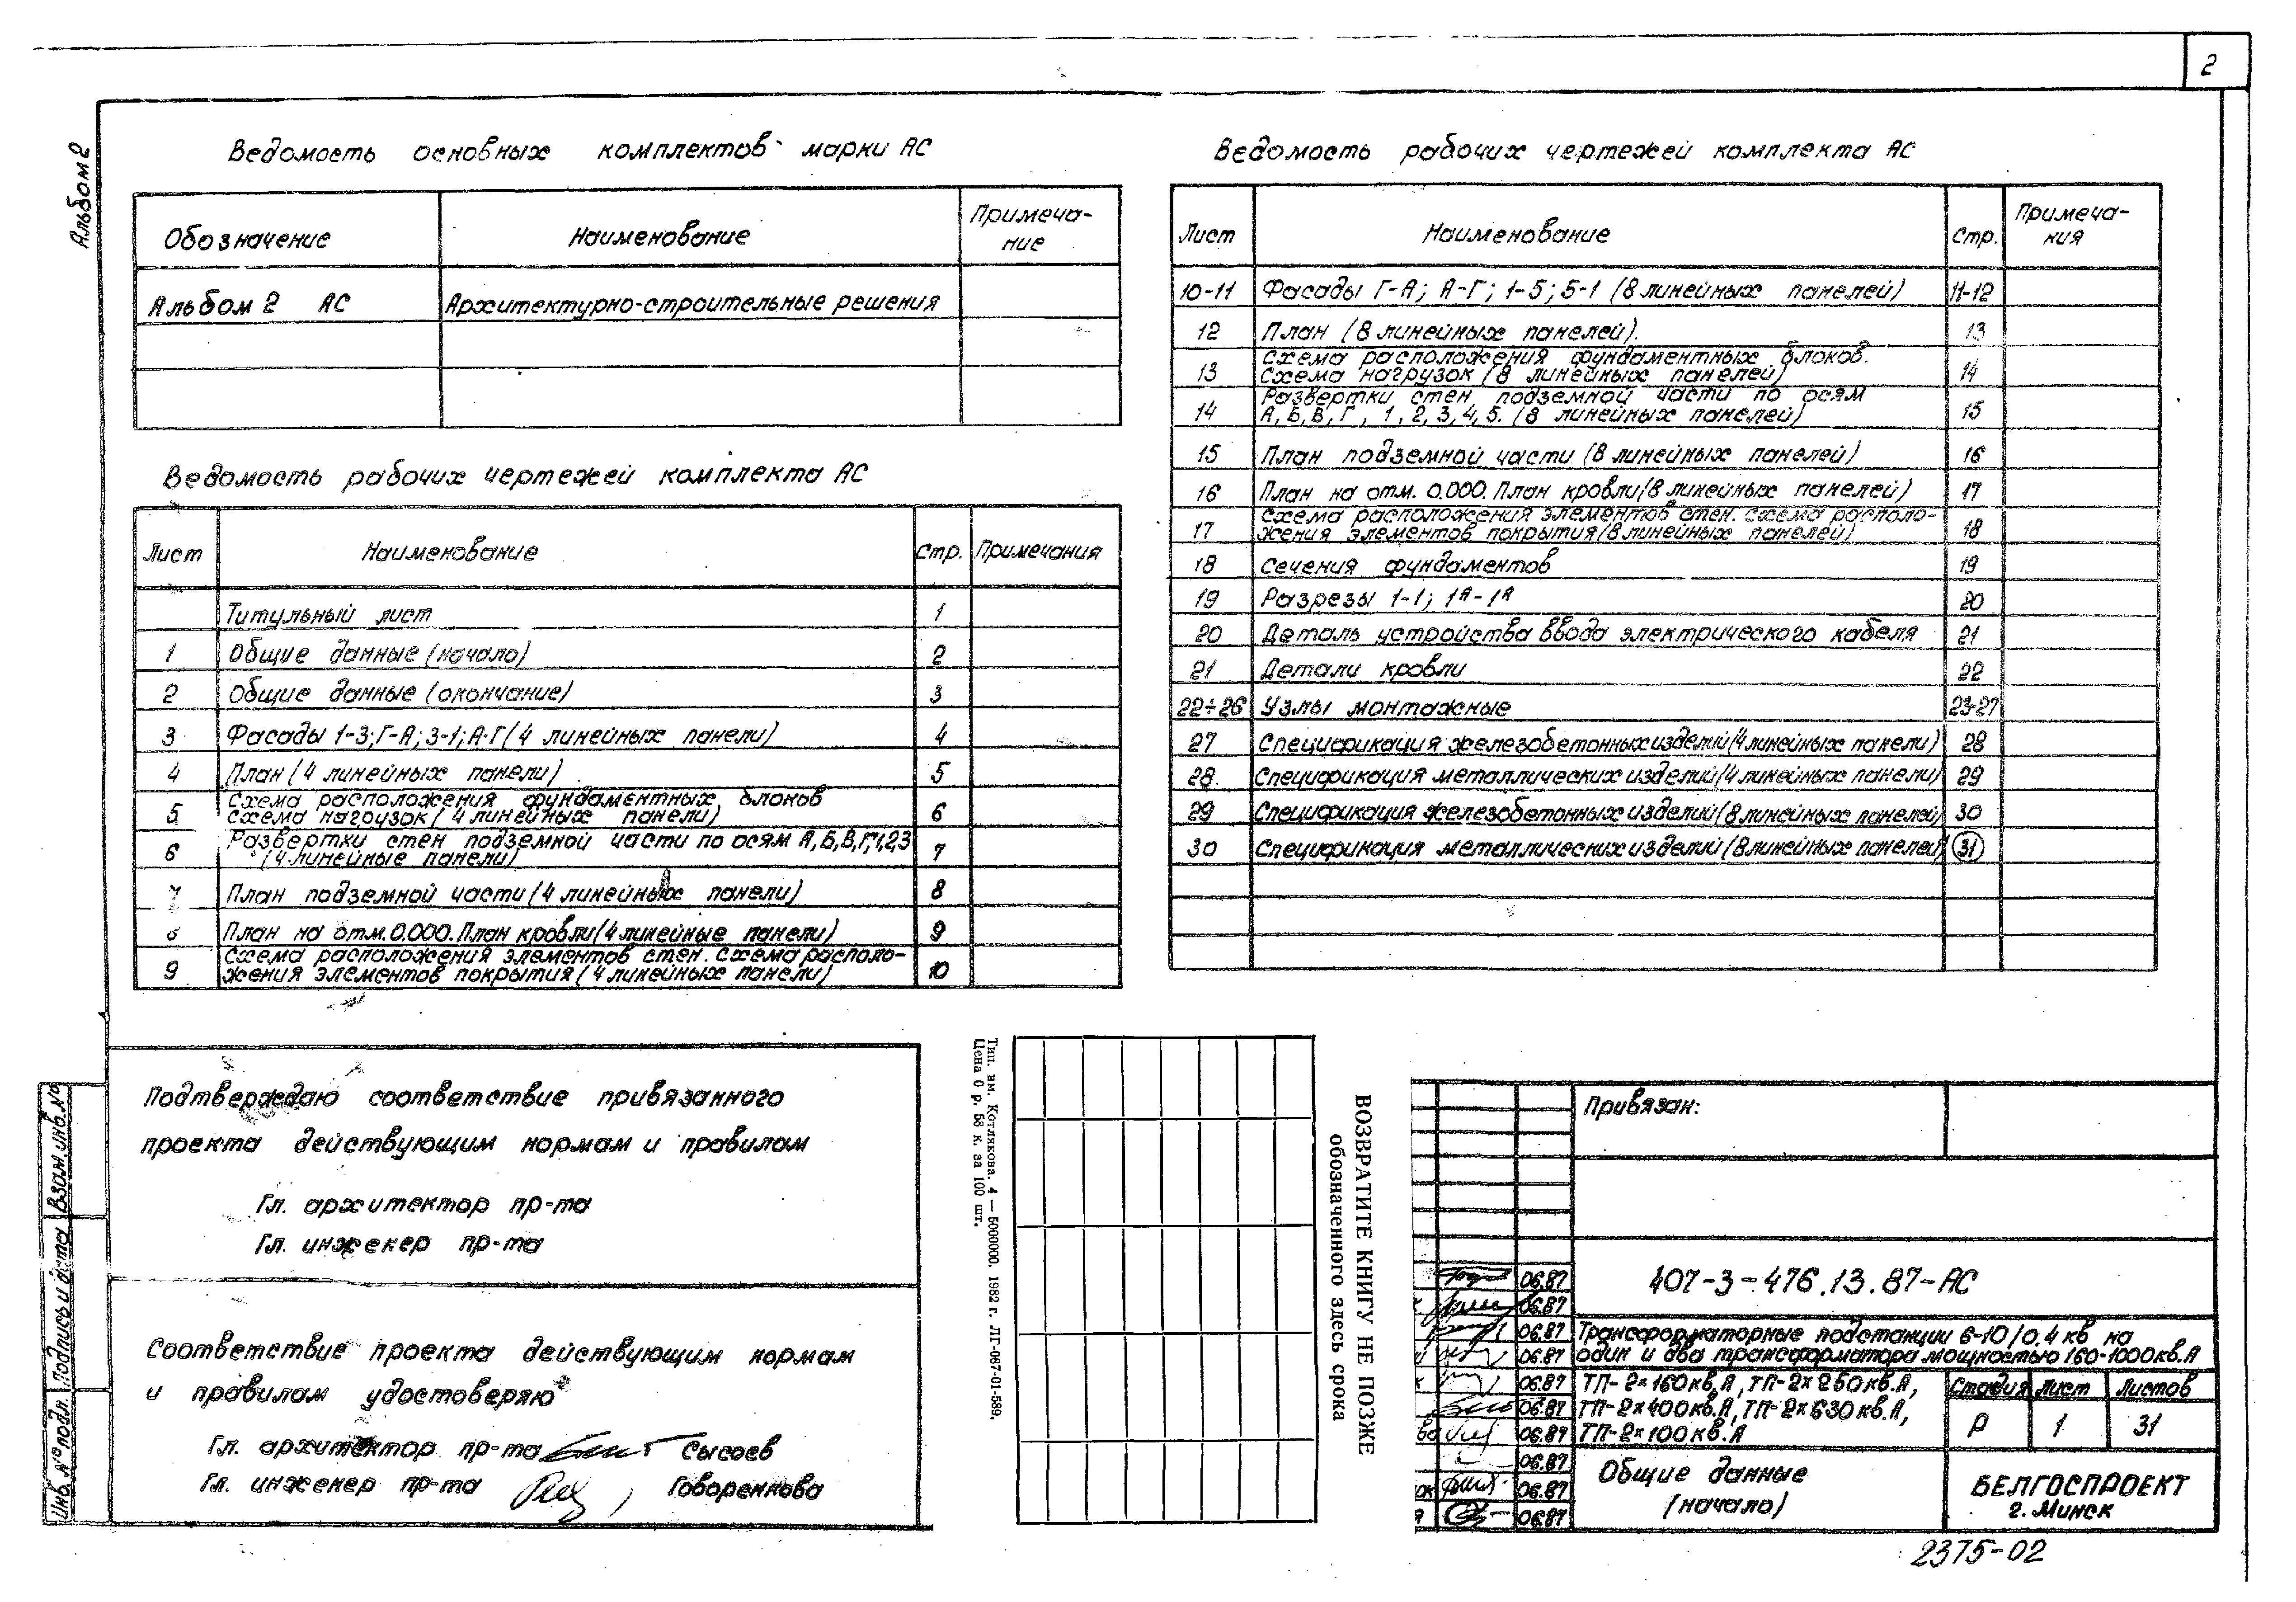 2
Альбом 2
Ведомость основных комплектов марки АС
Обозначение Наименование Примеча-
ние
Альбом 2 АС Архитектурно-строительные решения
Ведомость рабочих чертежей комплекта АС
Лист Наименование Стр. Примечания
Титульный лист 1
1 Общие данные (начало) 2
2 Общие данные (окончание) 3
3 Фасады 1-3; Г-А; 3-1; А-Г (4 линейных панели) 4
4 План (4 линейных панели) 5
5 Схема расположения фундаментных блоков
Схема нагрузок (4 линейных панели) 6
6 Развертки стен подземной части по осям А, Б, В, Г, 1,2,3
(4 линейные панели) 7
7 План подземной части (4 линейных панели) 8
8 План на отм. 0.000. План кровли (4 линейные панели) 9
9 Схема расположения элементов стен. Схема располо-
жения элементов покрытия (4 линейных панели) 10
Ведомость рабочих чертежей комплекта АС
Лист Наименование Стр. Примеча-
ния
10-11 Фасады Г-А; А-Г; 1-5; 5-1 (8 линейных панелей) 11-12
12 План (8 линейных панелей). 13
13 Схема расположения фундаментных блоков.
Схема нагрузок (8 линейных панелей) 14
14 Развертки стен подземной части по осям
А, Б, В, Г, 1, 2, 3, 4, 5. (8 линейных панелей) 15
15 План подземной части (8 линейных панелей) 16
16 План на отм. 0.000. План кровли (8 линейных панелей) 17
17 Схема расположения элементов стен. Схема располо-
жения элементов покрытия (8 линейных панелей) 18
18 Сечения фундаментов 19
19 Разрезы 1-1; 1А-1А 20
20 Деталь устройства ввода электрического кабеля 21
21 Детали кровли 22
22÷26 Узлы монтажные 23-27
27 Спецификация железобетонных изделий (4 линейных панели) 28
28 Спецификация металлических изделий (4 линейных панели) 29
29 Спецификация железобетонных изделий (8 линейных панелей) 30
30 Спецификация металлических изделий (8 линейных панелей) 31
Подтверждаю соответствие привязанного
проекта действующим нормам и правилам
Гл. архитектор пр-та
Гл. инженер пр-та
Соответствие проекта действующим нормам
и правилам удостоверяю
Гл. архитектор пр-та Сысоев
Гл. инженер пр-та Говоренкова
Инв. № подл. Подпись и дата Взам. инв. №
Тип. им. Котлякова. 4 — 5000000. 1982 г. ЛГ-067-01-589.
Цена 0 р. 58 к. за 100 шт.
ВОЗВРАТИТЕ КНИГУ НЕ ПОЗЖЕ
обозначенного здесь срока
Привязан:
06.87
06.87
06.87
06.87
06.87
06.87
06.87
06.87
06.87
06.87
407-3-476.13.87-АС
Трансформаторные подстанции 6-10/0,4 кв на
один и два трансформатора мощностью 160-1000 кв.А
ТП-2×160 кв.А, ТП-2×250 кв.А,
ТП-2×400 кв.А, ТП-2×630 кв.А,
ТП-2×100 кв.А
Стадия Лист Листов
Р 1 31
Общие данные
(начало)
БЕЛГОСПРОЕКТ
г. Минск
2375-02